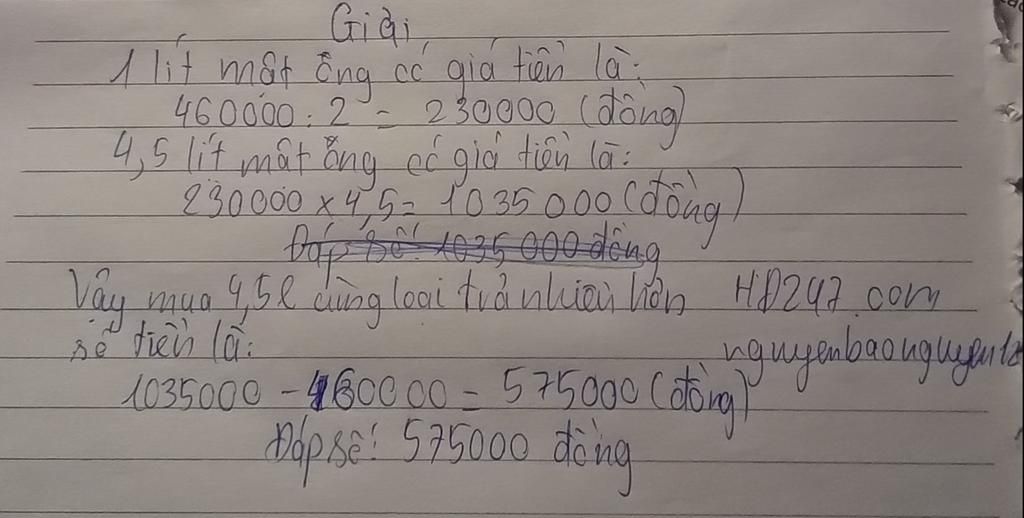 Giải
1 lít mật ong có giá tiền là:
460000 : 2 = 230000 (đồng)
4,5 lít mật ong có giá tiền là:
230000 x 4,5 = 1035000 (đồng)
Đáp số: 1035000 đồng
Vậy mua 4,5l cùng loại trả nhiều hơn
HD247.com
số tiền là:
nguyenbaonguyen12
1035000 - 460000 = 575000 (đồng)
Đáp số: 575000 đồng